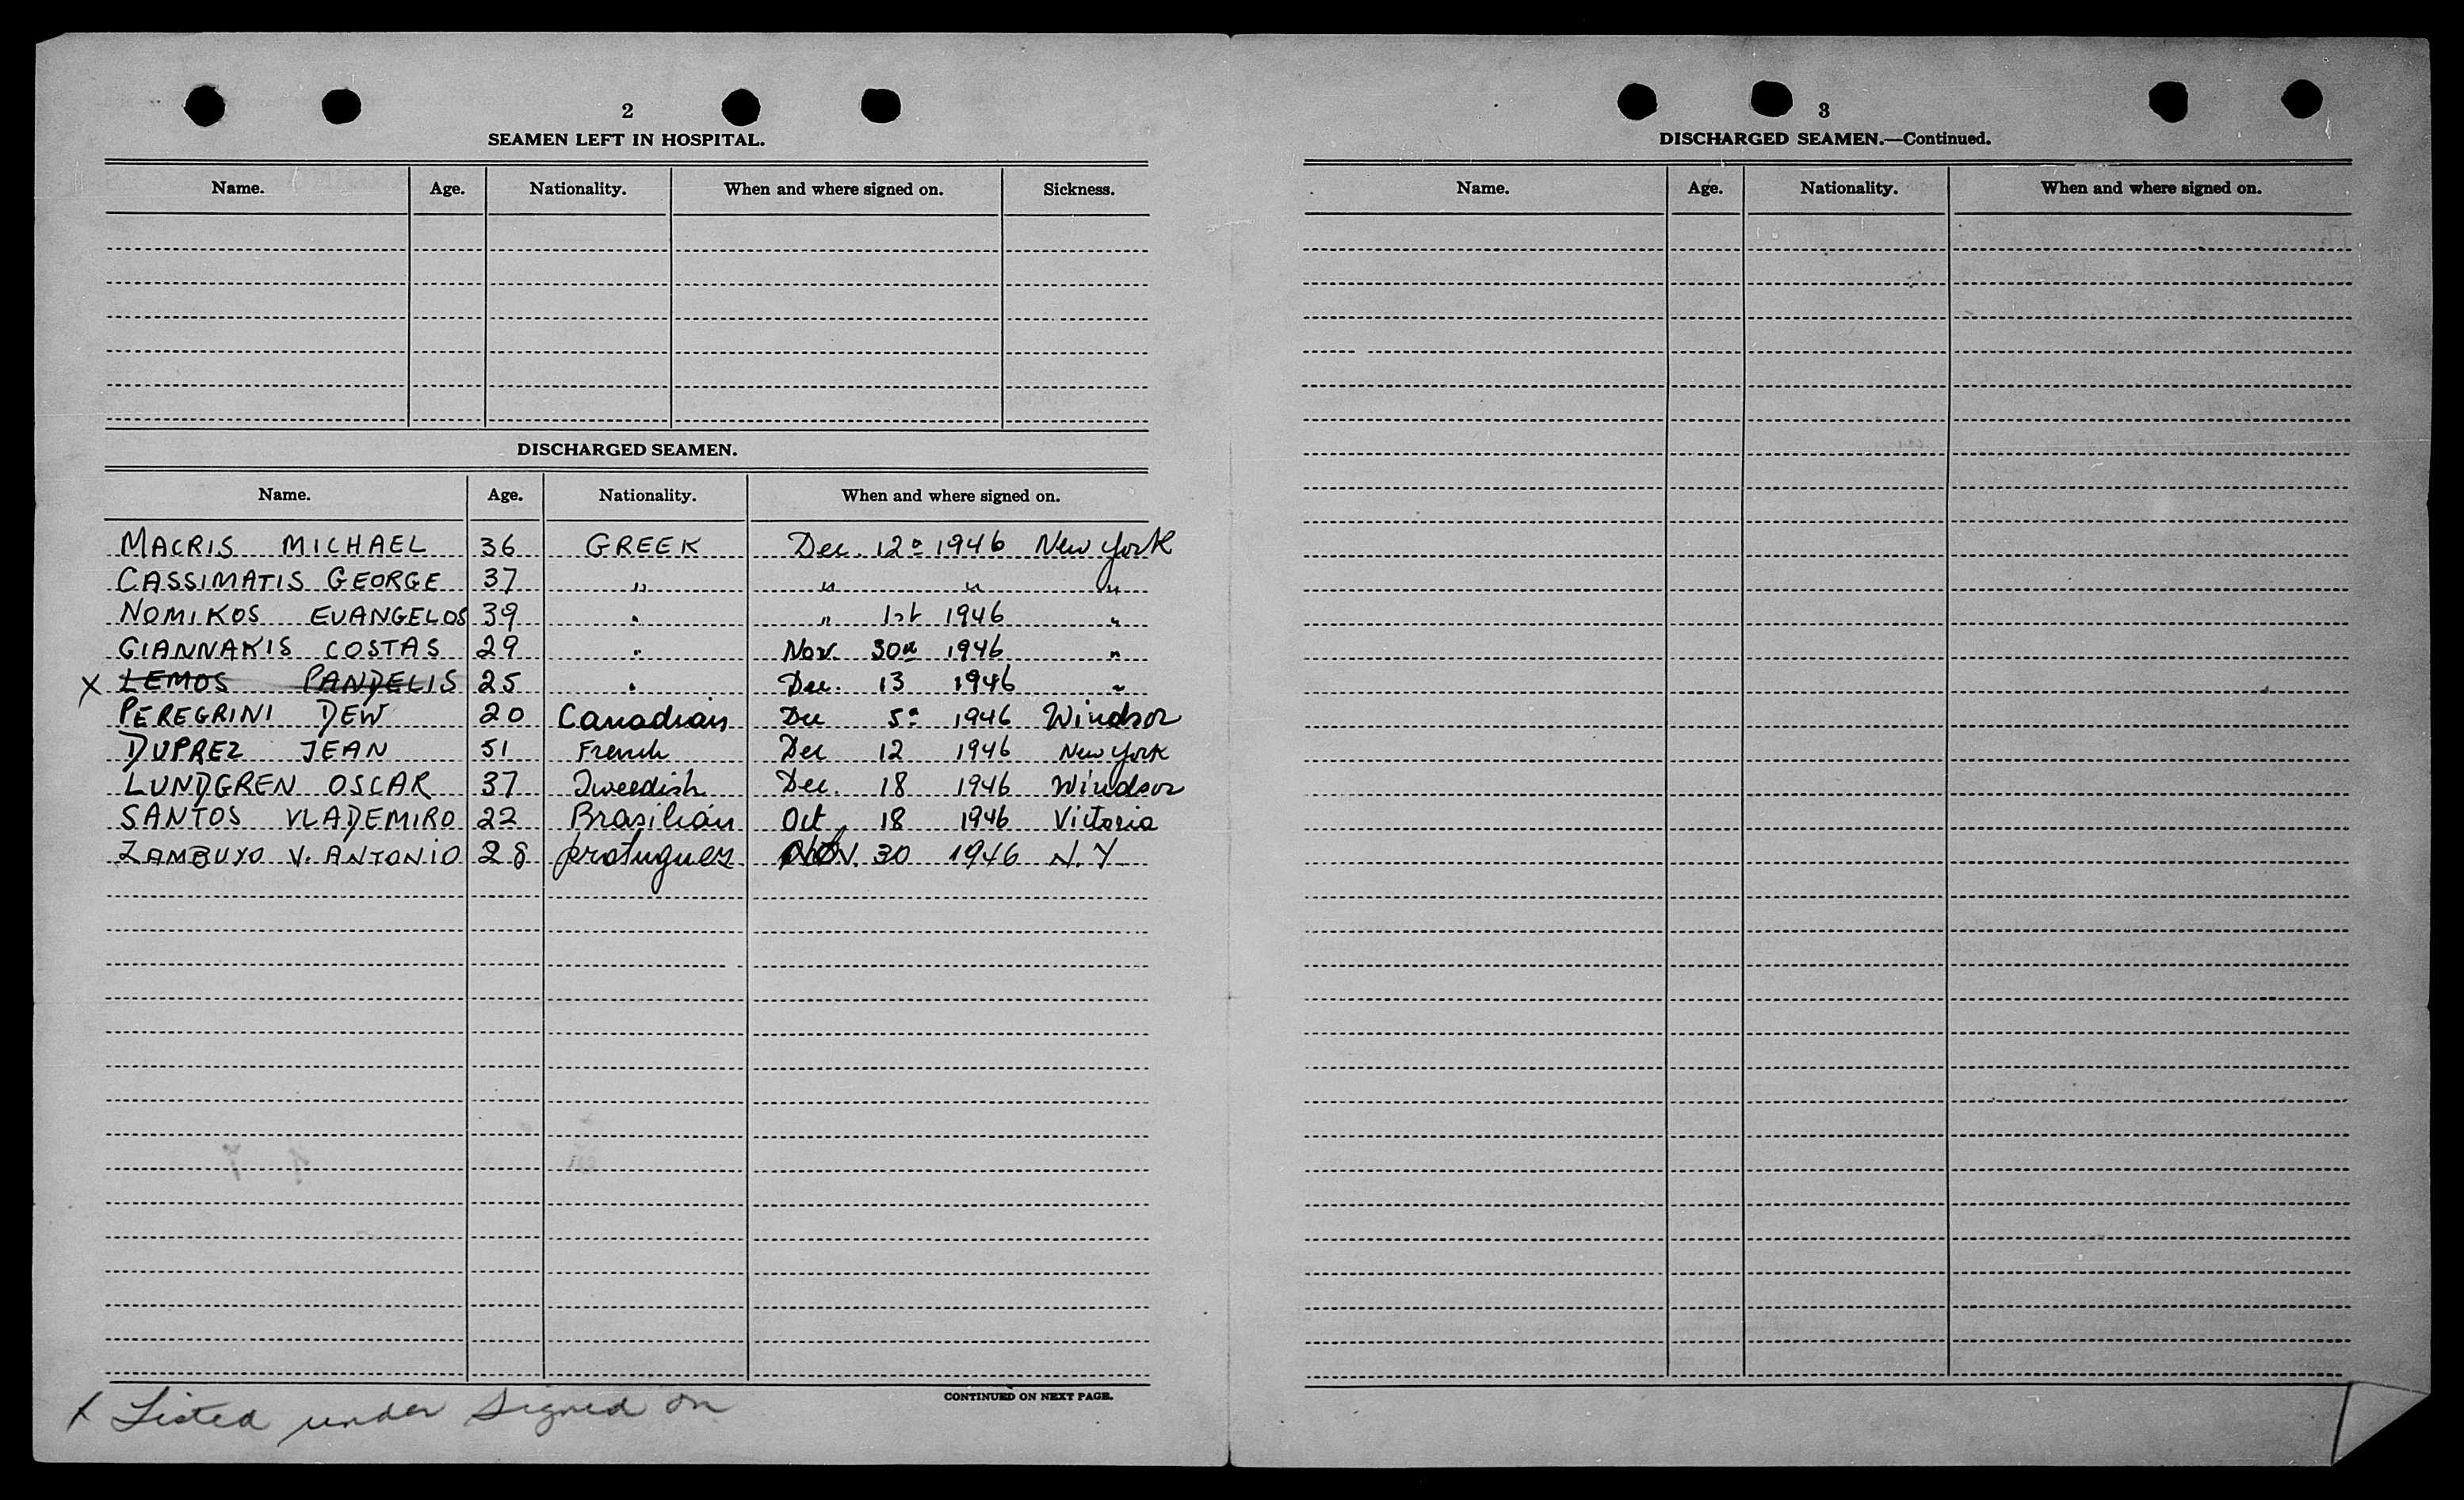 2
SEAMEN LEFT IN HOSPITAL.
Name. Age. Nationality. When and where signed on. Sickness.
DISCHARGED SEAMEN.
Name. Age. Nationality. When and where signed on.
MACRIS MICHAEL 36 GREEK Dec. 12º 1946 New York
CASSIMATIS GEORGE 37 " " " "
NOMIKOS EVANGELOS 39 " " 1st 1946 "
GIANNAKIS COSTAS 29 " Nov. 30th 1946 "
X LEMOS PANDELIS 25 " Dec. 13 1946 "
PEREGRINI DEW 20 Canadian Dec 5º 1946 Windsor
DUPREZ JEAN 51 French Dec 12 1946 New York
LUNDGREN OSCAR 37 Swedish Dec. 18 1946 Windsor
SANTOS VLADEMIRO 22 Brasilian Oct 18 1946 Victoria
ZAMBUYO V. ANTONIO 28 protuguez NOV. 30 1946 N.Y
CONTINUED ON NEXT PAGE.
X Listed under signed on
3
DISCHARGED SEAMEN.—Continued.
Name. Age. Nationality. When and where signed on.